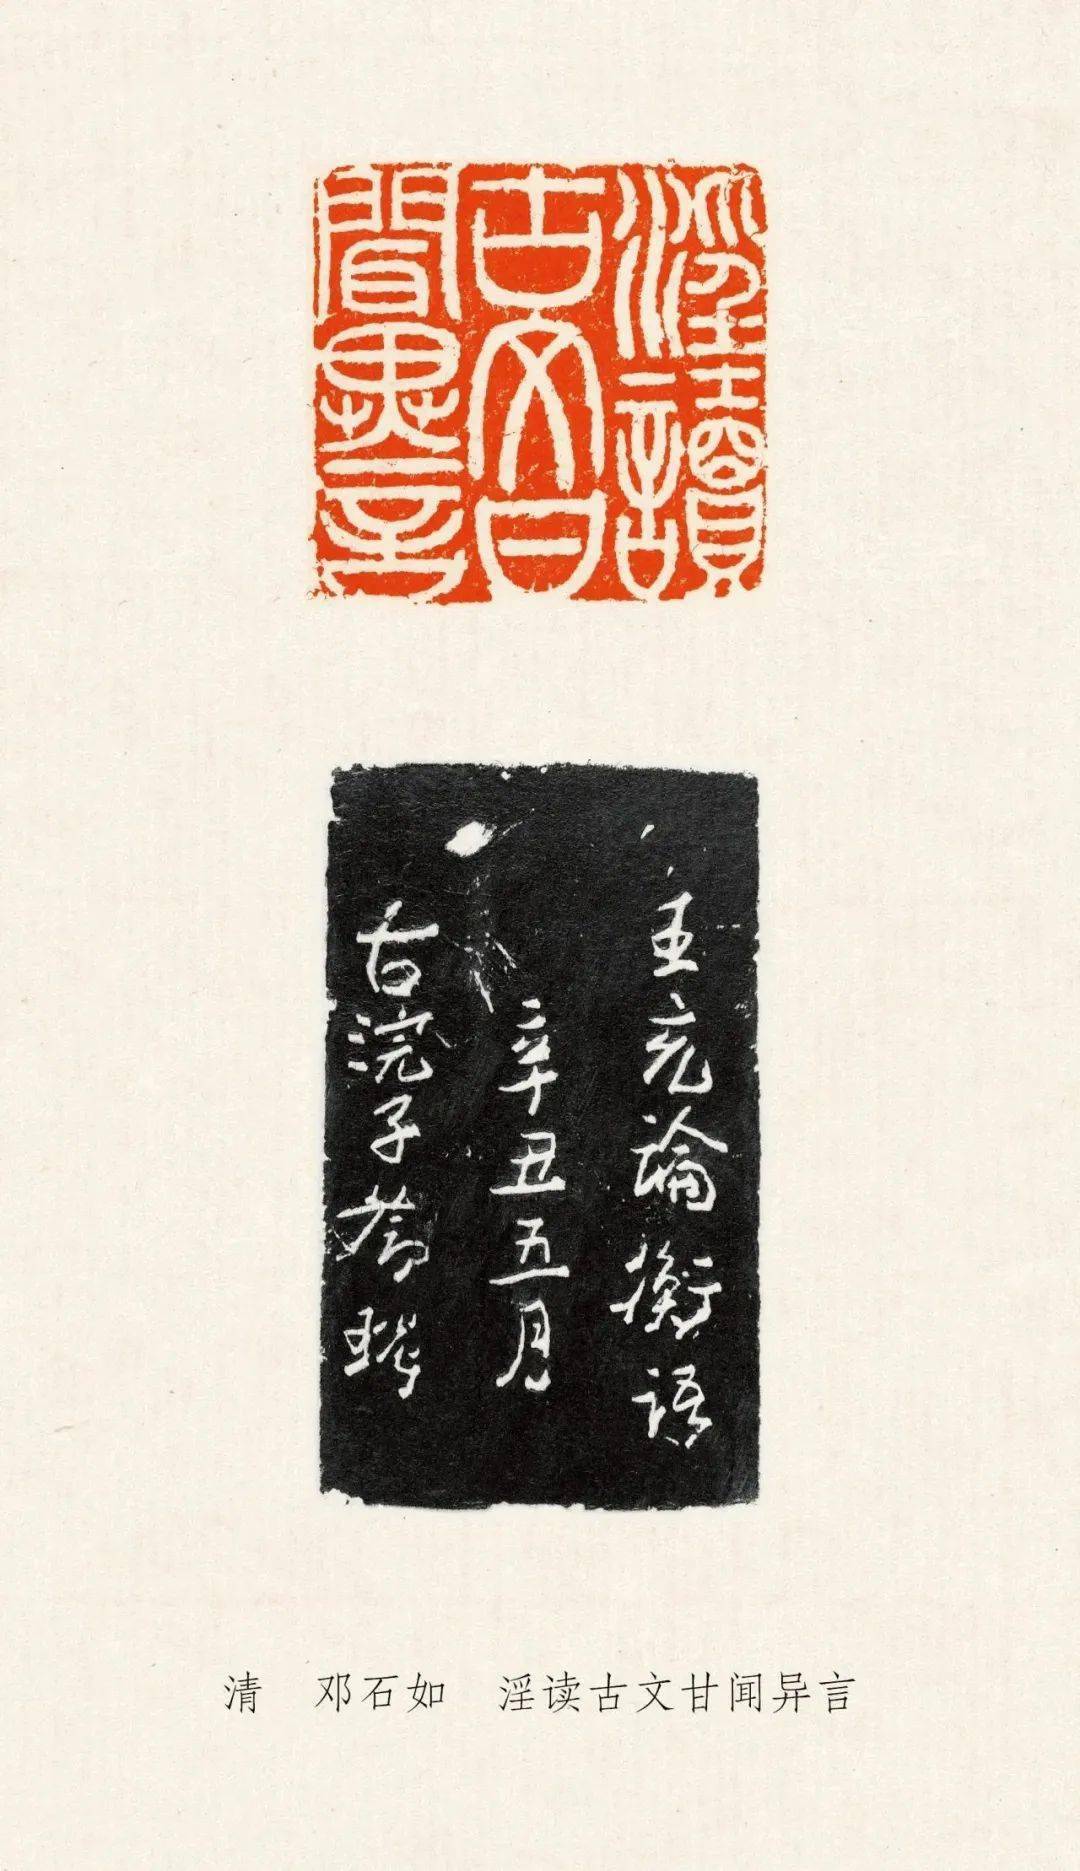 淫讀
古文甘
聞異言
王充論衡語
辛丑五月
古浣子鄧琰
清　邓石如　淫读古文甘闻异言